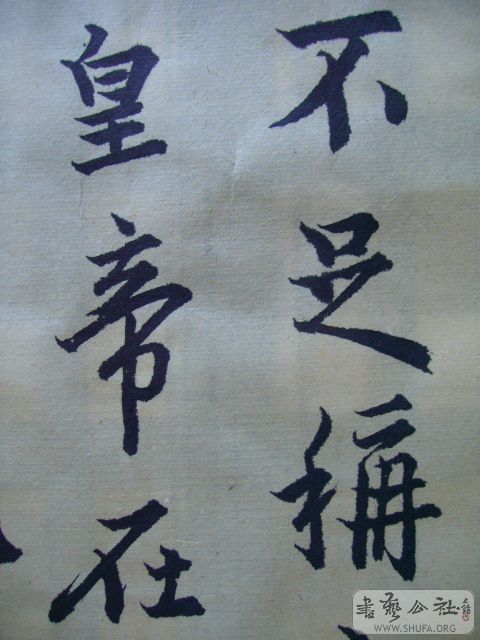 不足稱
皇帝在
書藝公社
WWW.SHUFA.ORG